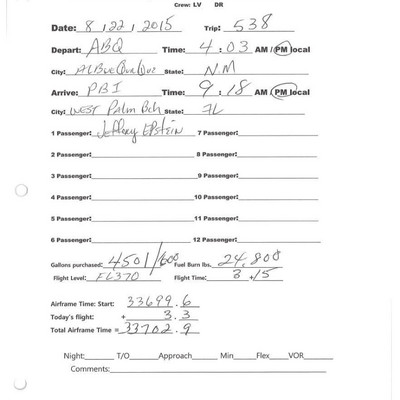 Crew: LV DR
Date: 8 / 22 / 2015 Trip: 538
Depart: ABQ Time: 4:03 AM / PM local
City: State: N.M
Arrive: PBI Time: 9:18 AM / PM local
City: West Palm Bch State: FL
1 Passenger: Jeffrey Epstein 7 Passenger:
2 Passenger: 8 Passenger:
3 Passenger: 9 Passenger:
4 Passenger: 10 Passenger:
5 Passenger: 11 Passenger:
6 Passenger: 12 Passenger:
Gallons purchased: 4501/600 Fuel Burn lbs. 24,800
Flight Level: FL370 Flight Time: 3 + 15
Airframe Time: Start: 33699.6
Today's flight: + 3.3
Total Airframe Time = 33702.9
Night: T/O Approach Min Flex VOR
Comments: